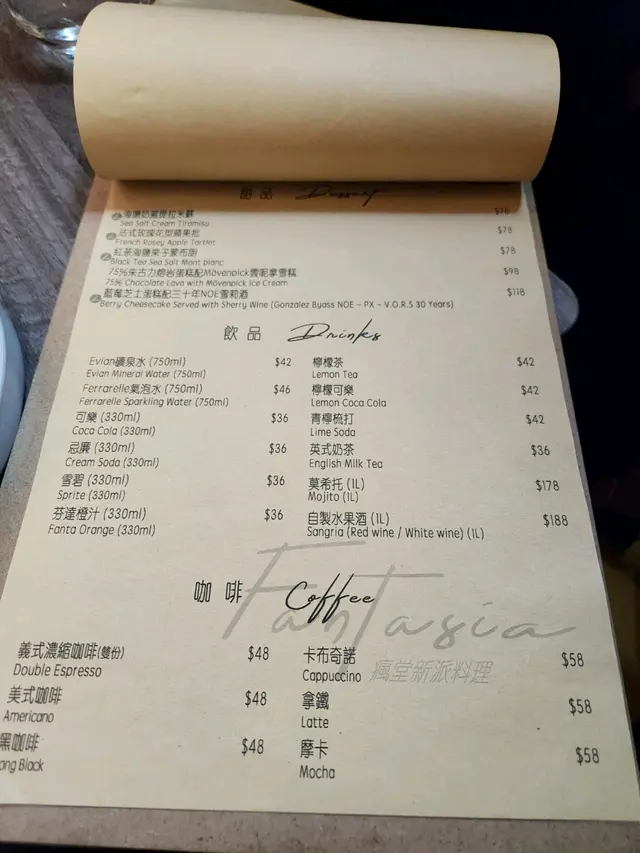 甜品 Dessert
海鹽奶蓋提拉米蘇 $78
Sea Salt Cream Tiramisu
法式玫瑰花型蘋果批 $78
French Rosey Apple Tartlet
紅茶海鹽栗子蒙布朗 $78
Black Tea Sea Salt Mont blanc
75%朱古力熔岩蛋糕配Mövenpick雲呢拿雪糕 $98
75% Chocolate Lava with Mövenpick Ice Cream
藍莓芝士蛋糕配三十年NOE雪莉酒 $118
Berry Cheesecake Served with Sherry Wine (Gonzalez Byass NOE - PX - V.O.R.S 30 Years)
飲品 Drinks
Evian礦泉水 (750ml) $42 檸檬茶 $42
Evian Mineral Water (750ml) Lemon Tea
Ferrarelle氣泡水 (750ml) $46 檸檬可樂 $42
Ferrarelle Sparkling Water (750ml) Lemon Coca Cola
可樂 (330ml) $36 青檸梳打 $42
Coca Cola (330ml) Lime Soda
忌廉 (330ml) $36 英式奶茶 $36
Cream Soda (330ml) English Milk Tea
雪碧 (330ml) $36 莫希托 (1L) $178
Sprite (330ml) Mojito (1L)
芬達橙汁 (330ml) $36 自製水果酒 (1L) $188
Fanta Orange (330ml) Sangria (Red wine / White wine) (1L)
咖啡 Coffee
Fantasia
義式濃縮咖啡(雙份) $48 卡布奇諾 $58
Double Espresso Cappuccino 瘋堂新派料理
美式咖啡 $48 拿鐵 $58
Americano Latte
黑咖啡 $48 摩卡 $58
ong Black Mocha